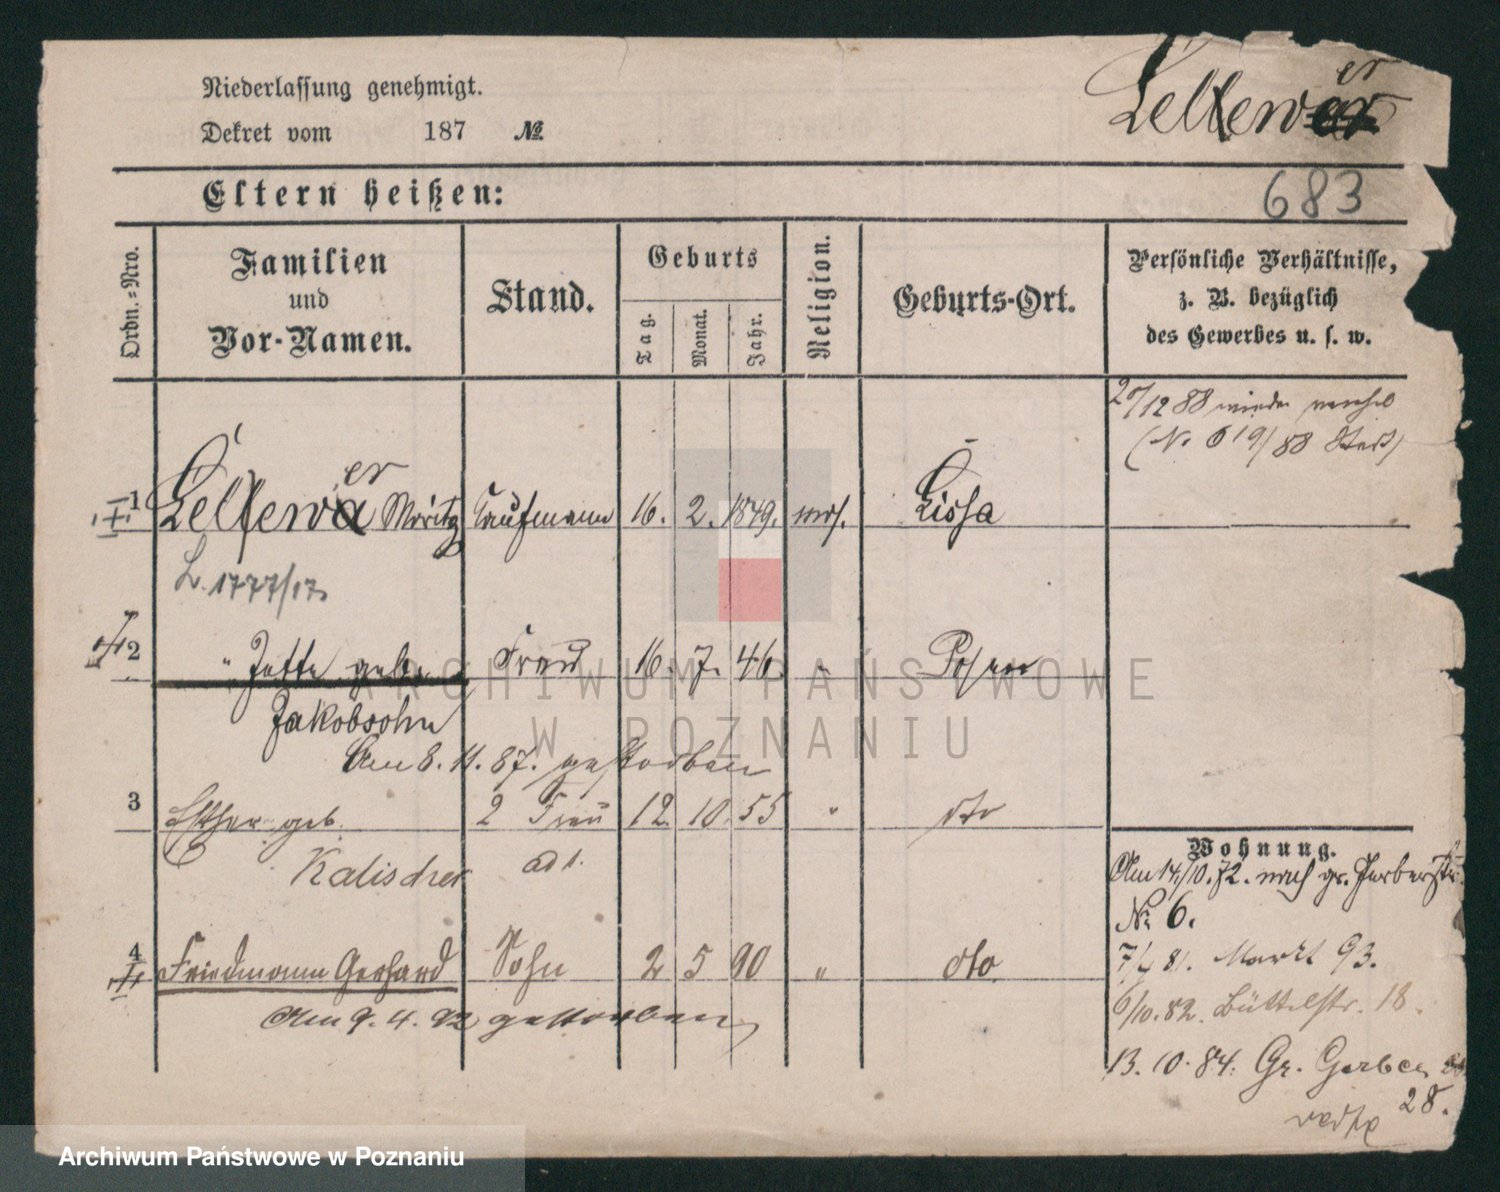 Niederlassung genehmigt.
Dekret vom 187 №
Lellewer
er
683
Eltern heißen:
Ordn.-Nro.
Familien
und
Vor-Namen.
Stand.
Geburts
Tag.
Monat.
Jahr.
Religion.
Geburts-Ort.
Persönliche Verhältnisse,
z. B. bezüglich
des Gewerbes u. s. w.
20/12 88 wieder
(N. 619/88
er
1 Lellewer Moritz Kaufmann 16. 2. 1849. mos. Lissa
L. 1777/17
2 " Jette geb. Frau 16. 7. 46. " Posen
Jakobsohn
Am 8. 11. 87. gestorben
3 Esther geb. 2 Frau 12 10 55 " dto
Kalischer ad 1.
4 Friedmann Gerhard Sohn 2 5 90 " dto.
Am 9. 4. 92 gestorben
Wohnung.
Am 14/10. 72. nach gr. Gerberstr.
No 6.
7/4 81. Markt 93.
6/10. 82. Büttelstr. 18.
13. 10. 84. Gr. Gerber
28.
ARCHIWUM PAŃSTWOWE
W POZNANIU
Archiwum Państwowe w Poznaniu